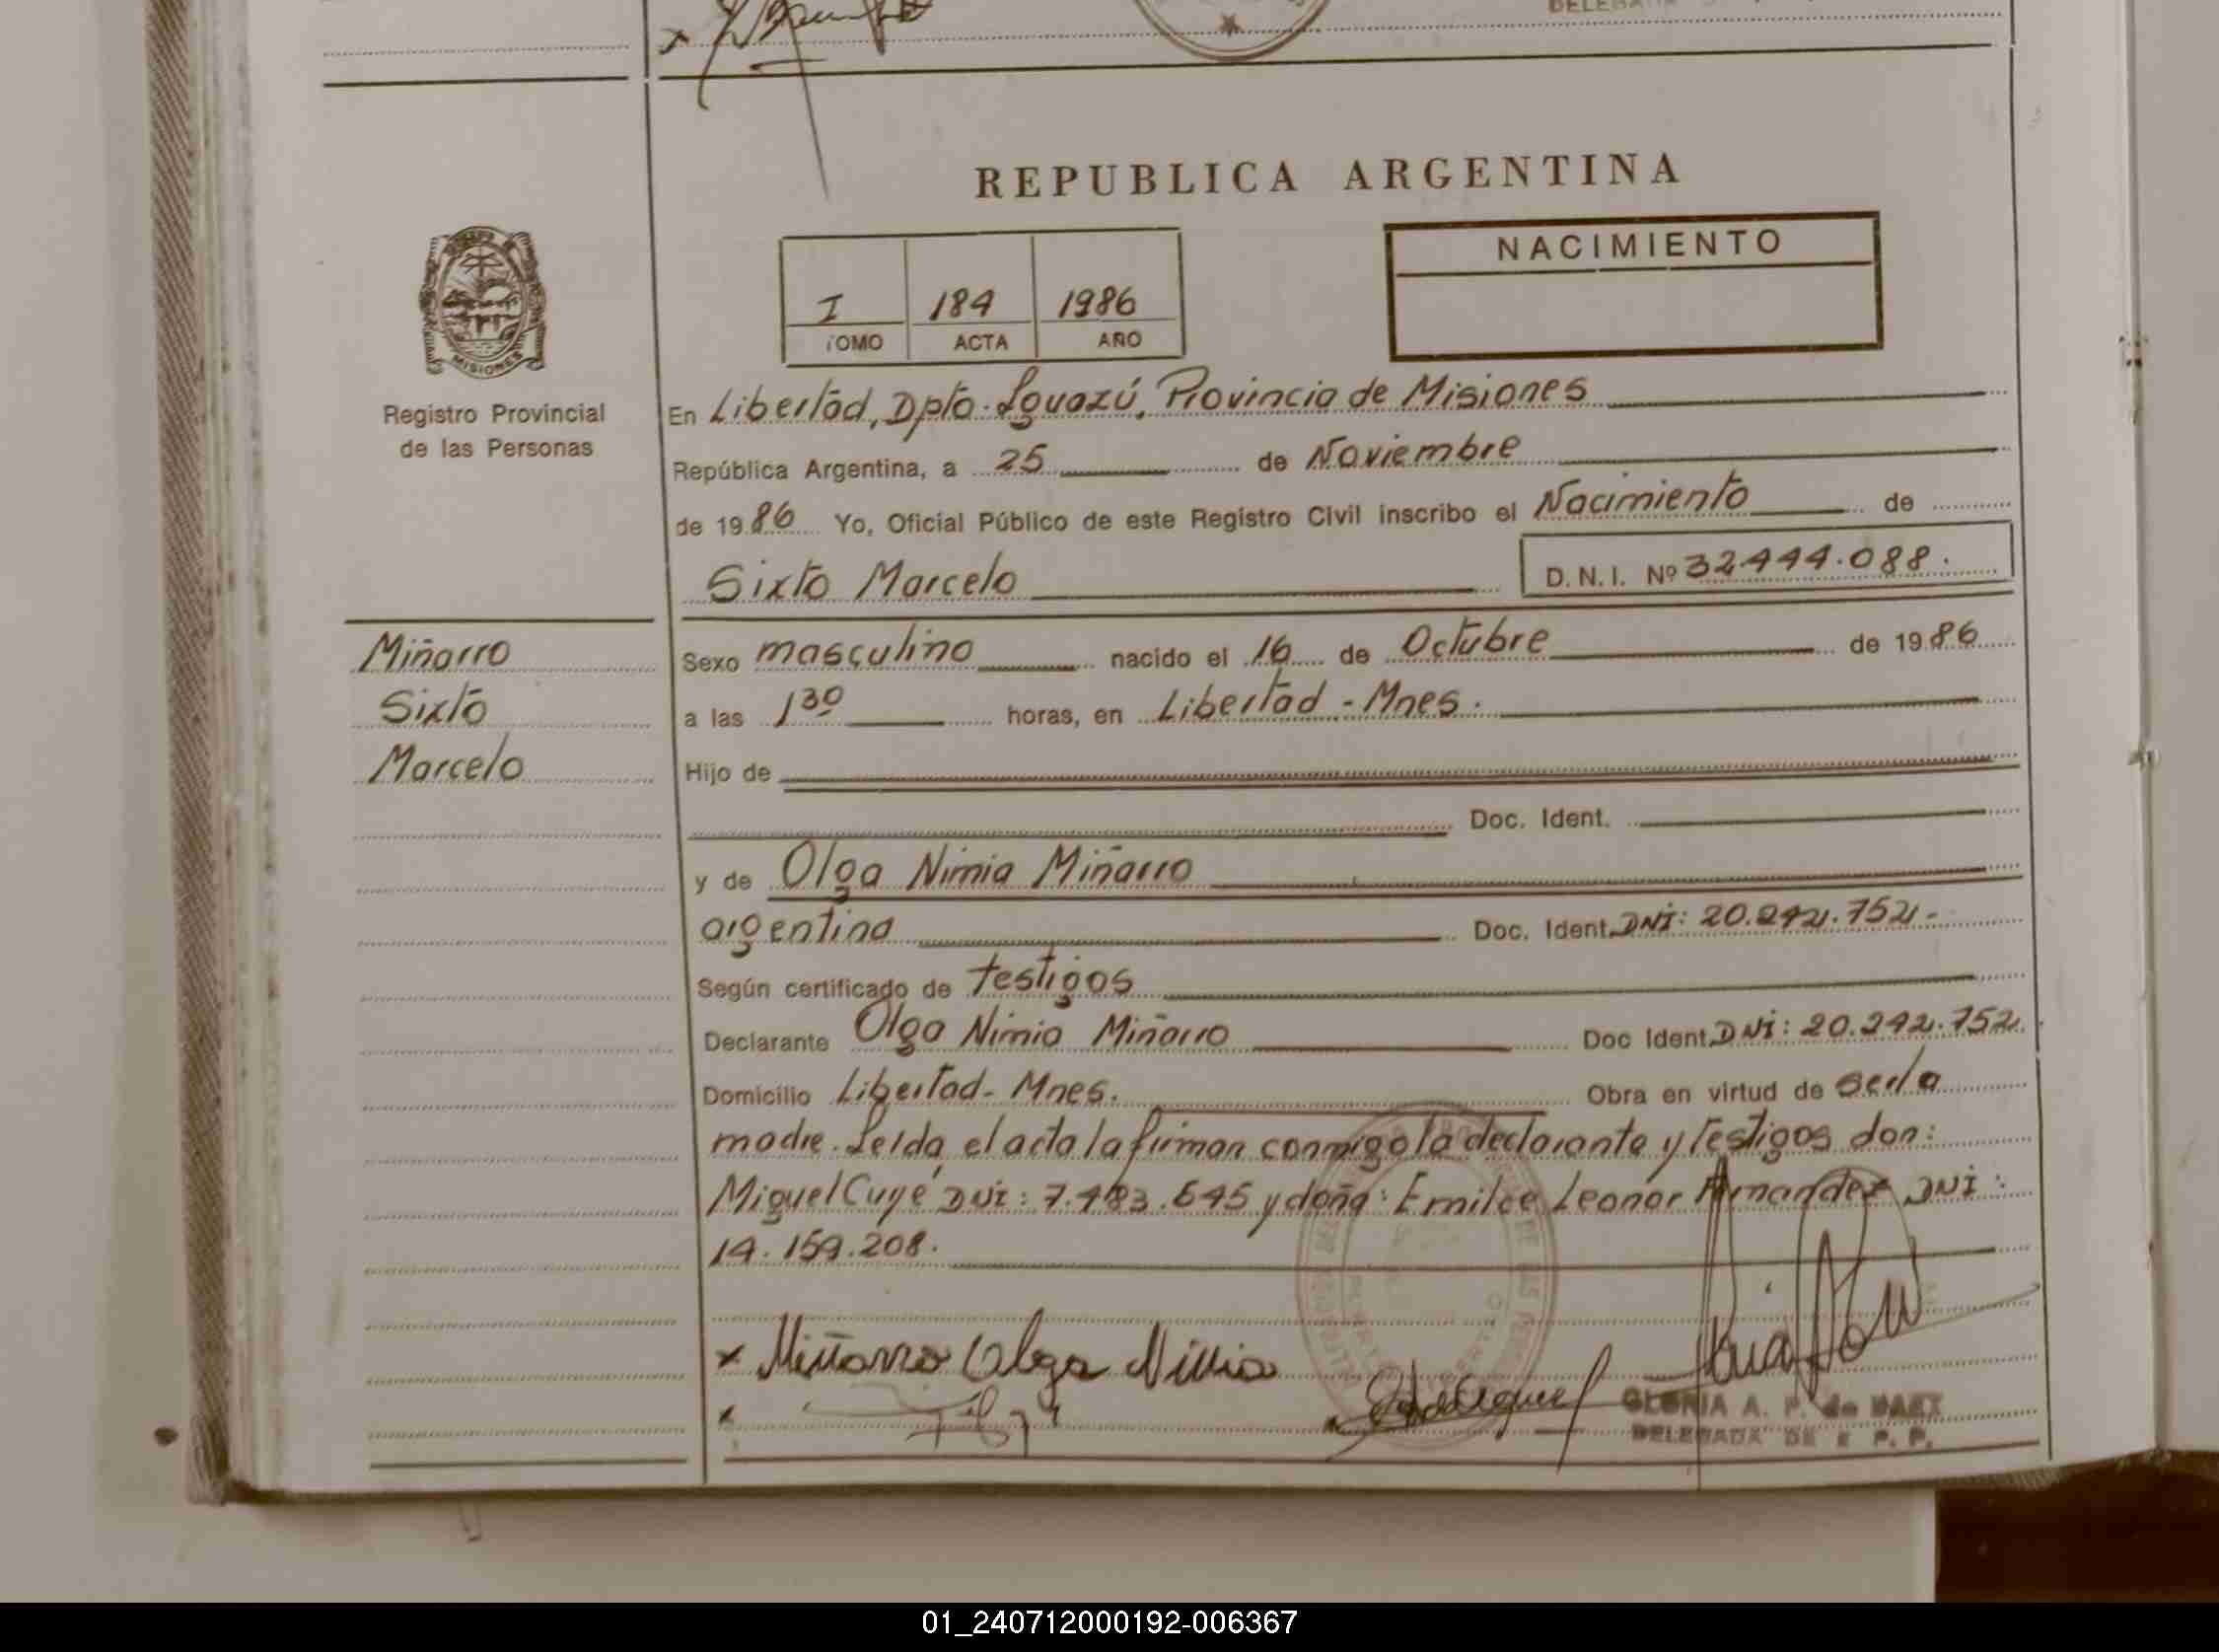 REPUBLICA ARGENTINA
NACIMIENTO
I 184 1986
TOMO ACTA AÑO
MISIONES
Registro Provincial
de las Personas
En Libertad, Dpto. Iguazú, Provincia de Misiones
República Argentina, a 25 de Noviembre
de 1986 Yo, Oficial Público de este Registro Civil inscribo el Nacimiento de
Sixto Marcelo D.N.I. Nº 32.444.088.
Miñarro
Sixto
Marcelo
Sexo masculino nacido el 16 de Octubre de 1986
a las 1 30 horas, en Libertad - Mnes.
Hijo de
Doc. Ident.
y de Olga Nimia Miñarro
argentina Doc. Ident. DNI: 20.242.752.-
Según certificado de testigos
Declarante Olga Nimia Miñarro Doc Ident. DNI: 20.242.752.
Domicilio Libertad - Mnes. Obra en virtud de ser la
madre. Leída el acta la firman conmigo la declarante y testigos don:
Miguel Cuyé DNI: 7.483.645 y doña: Emilce Leonor DNI:
14.159.208.
x Miñarro Olga Nimia
GLORIA A. P. de BAEZ
DELEGADA DE R P. P.
01_240712000192-006367